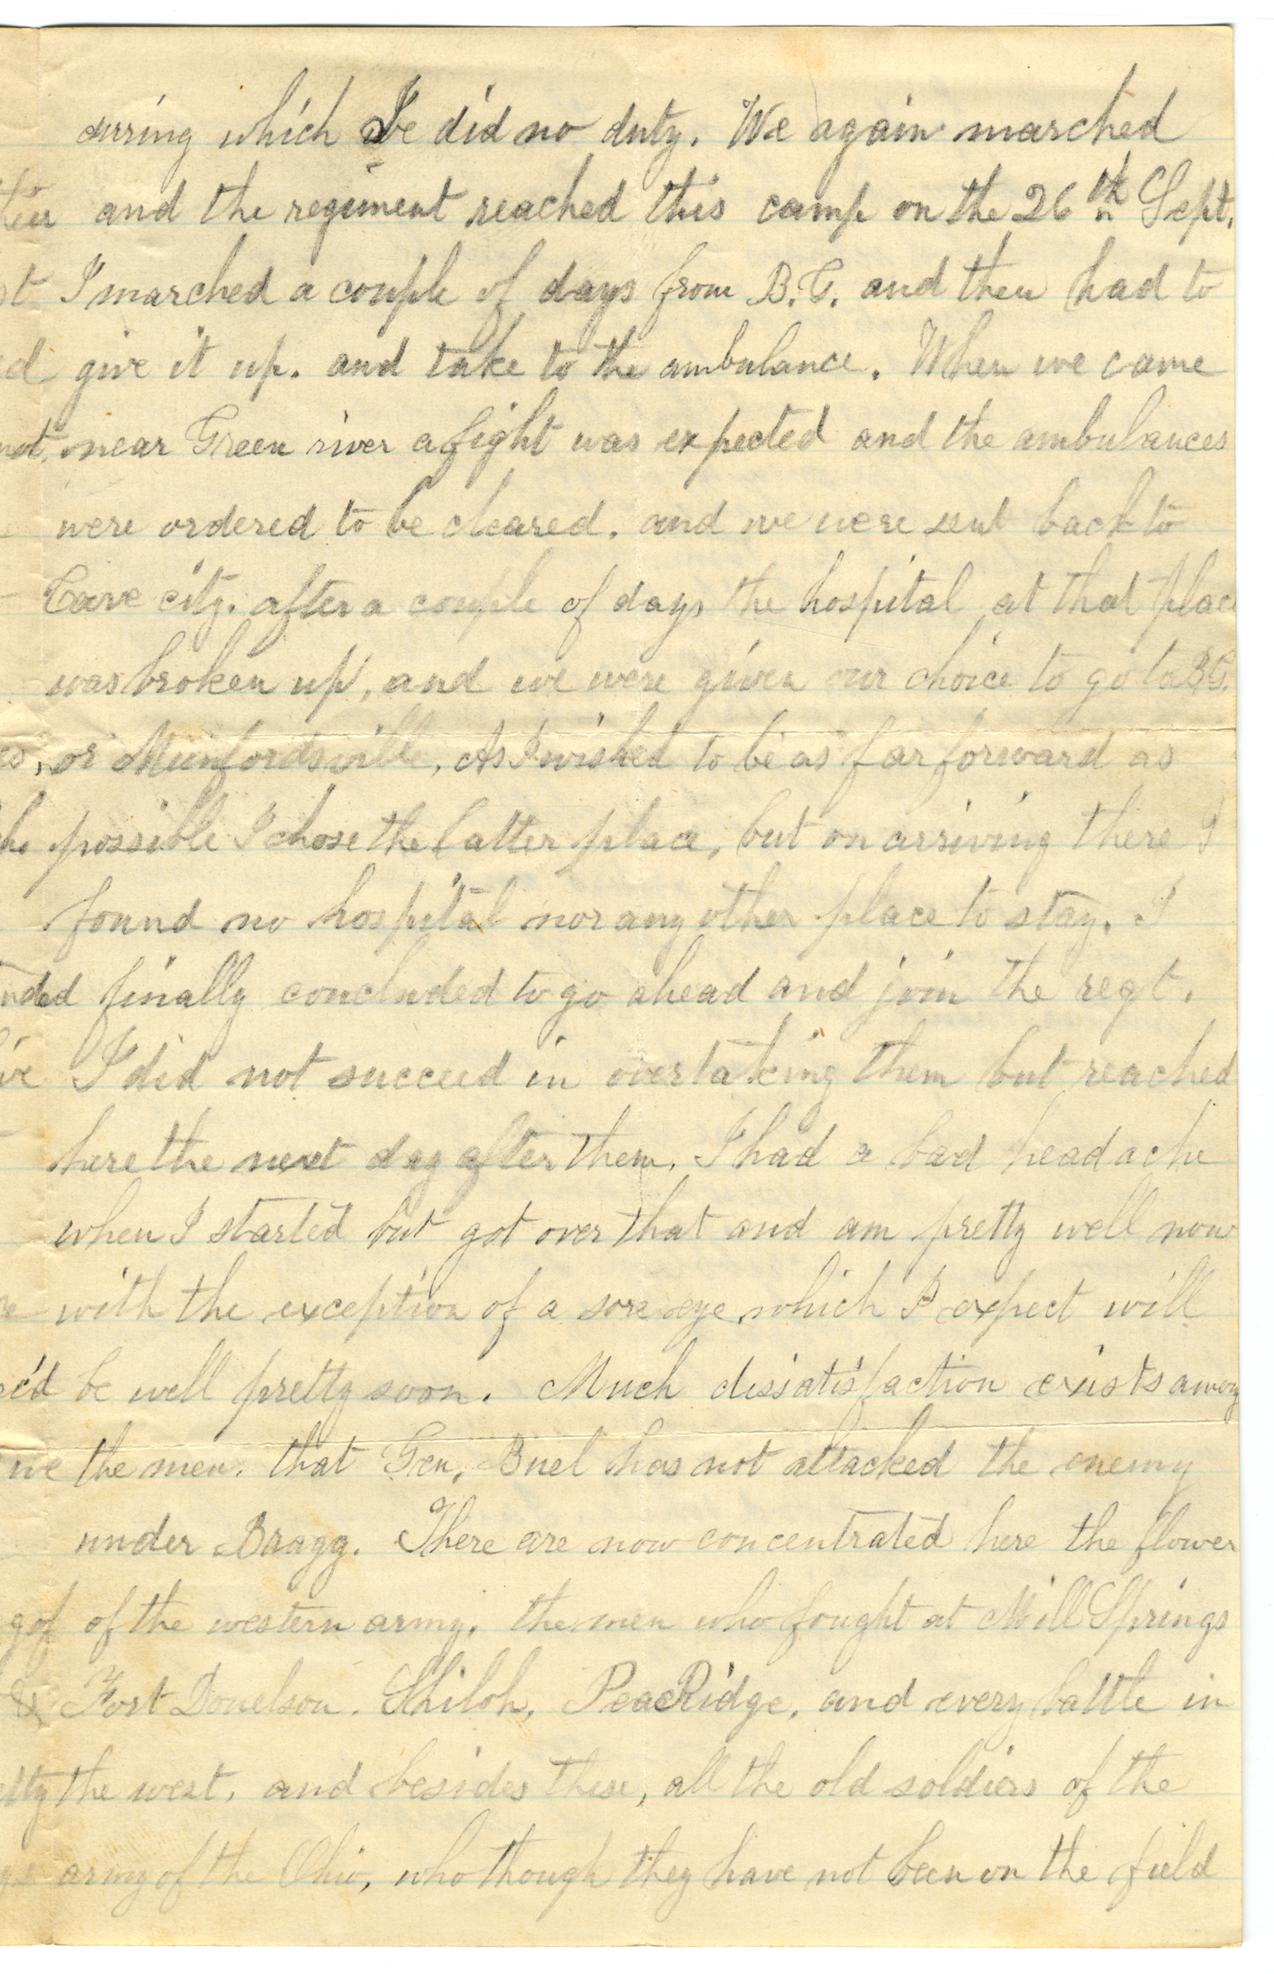 durring which I did no duty. We again marched
and the regiment reached this camp on the 26th Sept.
I marched a couple of days from B.G. and then had to
give it up. and take to the ambulance. When we came
near Green river a fight was expected and the ambulances
were ordered to be cleared. and we were sent back to
Cave city. after a couple of days the hospital at that place
was broken up, and we were given our choice to go to B.G.
or Munfordsville, As I wished to be as far forward as
possible I chose the latter place, but on arriving there I
found no hospital nor any other place to stay. I
finally concluded to go ahead and join the regt.
I did not succeed in overtaking them but reached
here the next day after them. I had a bad headache
when I started but got over that and am pretty well now
with the exception of a sore eye which I expect will
be well pretty soon. Much dissatisfaction exists among
the men. that Gen. Buel has not attacked the enemy
under Bragg. There are now concentrated here the flower
of the western army. the men who fought at Mill Springs
Fort Donelson. Shiloh, Pea Ridge, and every battle in
the west. and besides these, all the old soldiers of the
army of the Ohio, who though they have not been on the field